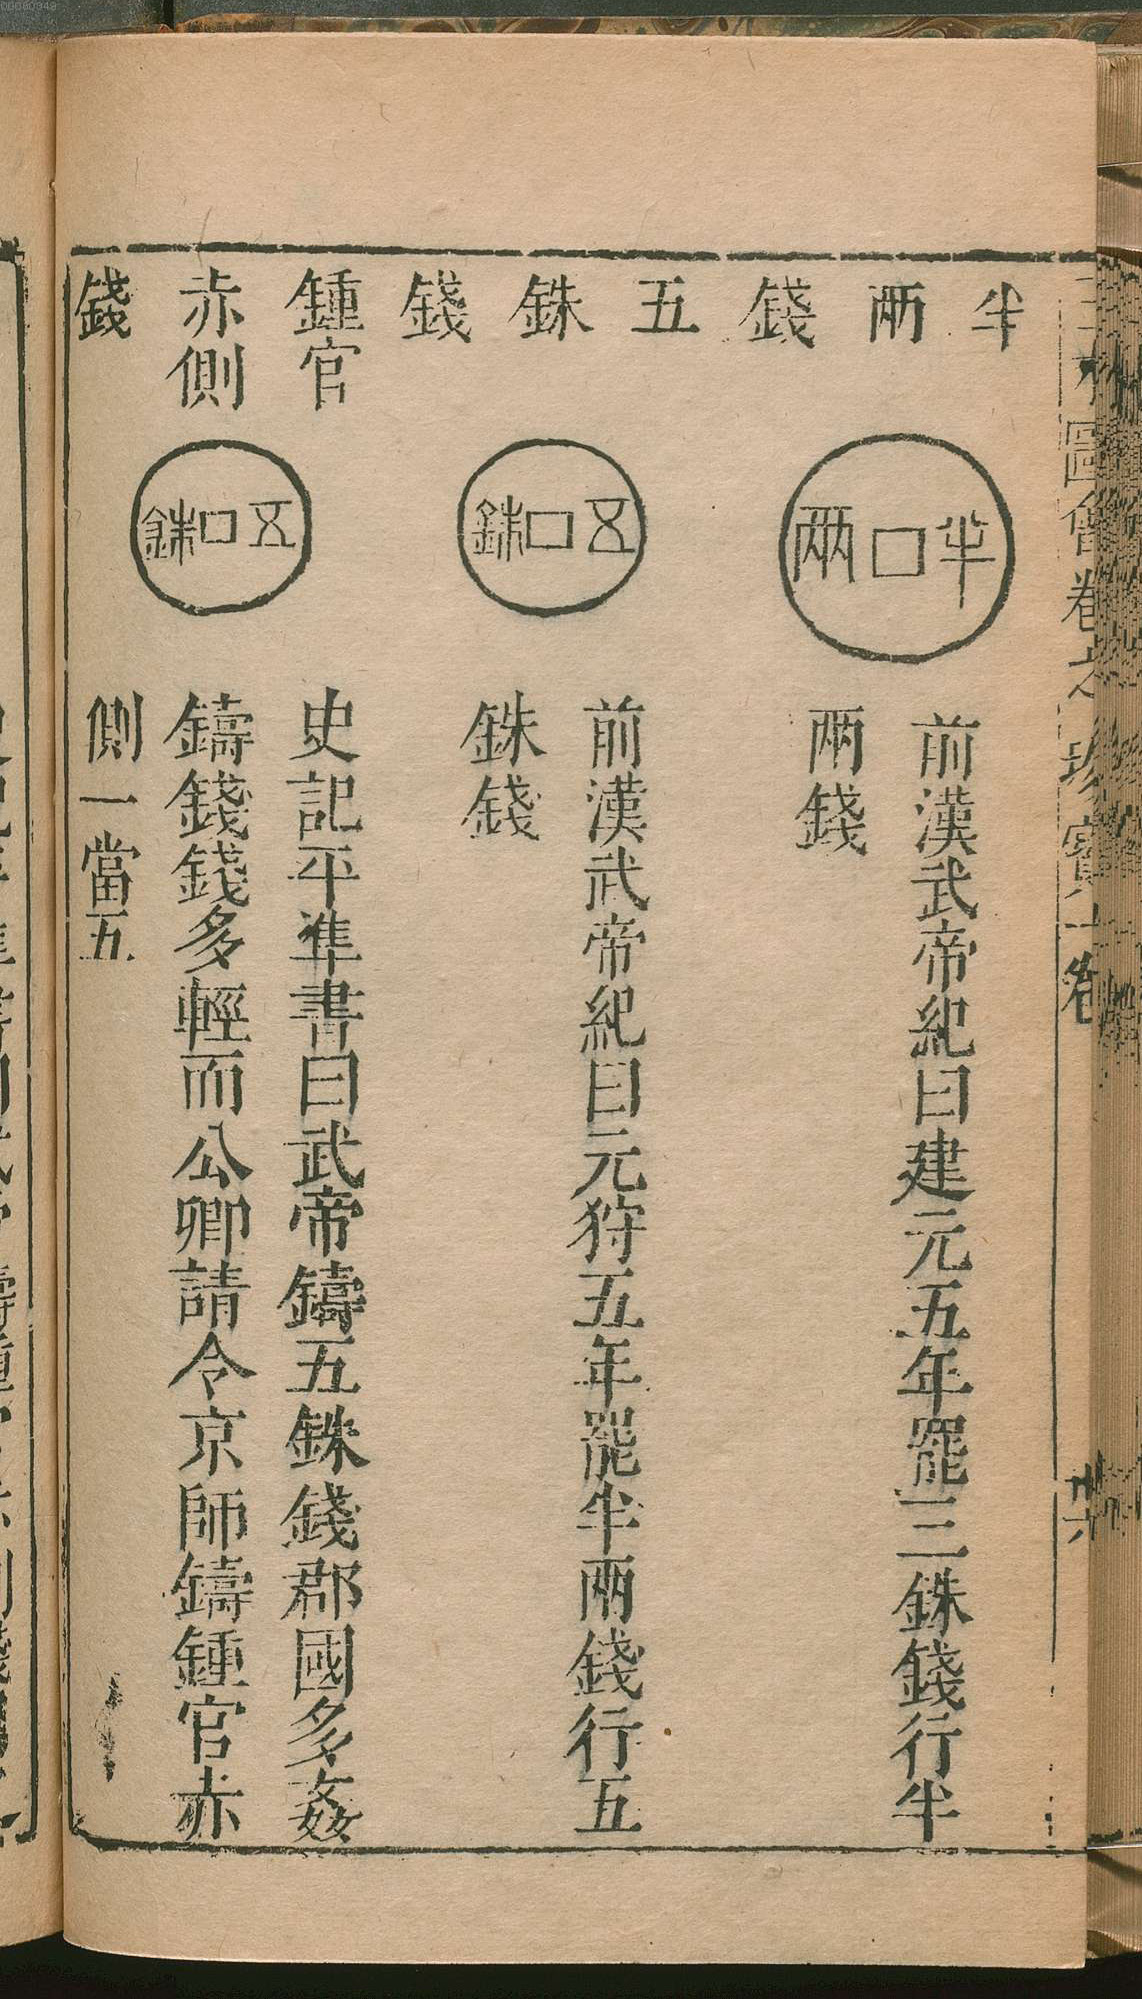 半兩錢
半 兩
前漢武帝紀曰建元五年罷三銖錢行半
兩錢
五銖錢
五 銖
前漢武帝紀曰元狩五年罷半兩錢行五
銖錢
鍾官
赤側
錢
五 銖
史記平準書曰武帝鑄五銖錢郡國多姦
鑄錢錢多輕而公卿請令京師鑄鍾官赤
側一當五
圖會卷之珍寶一卷
00000348